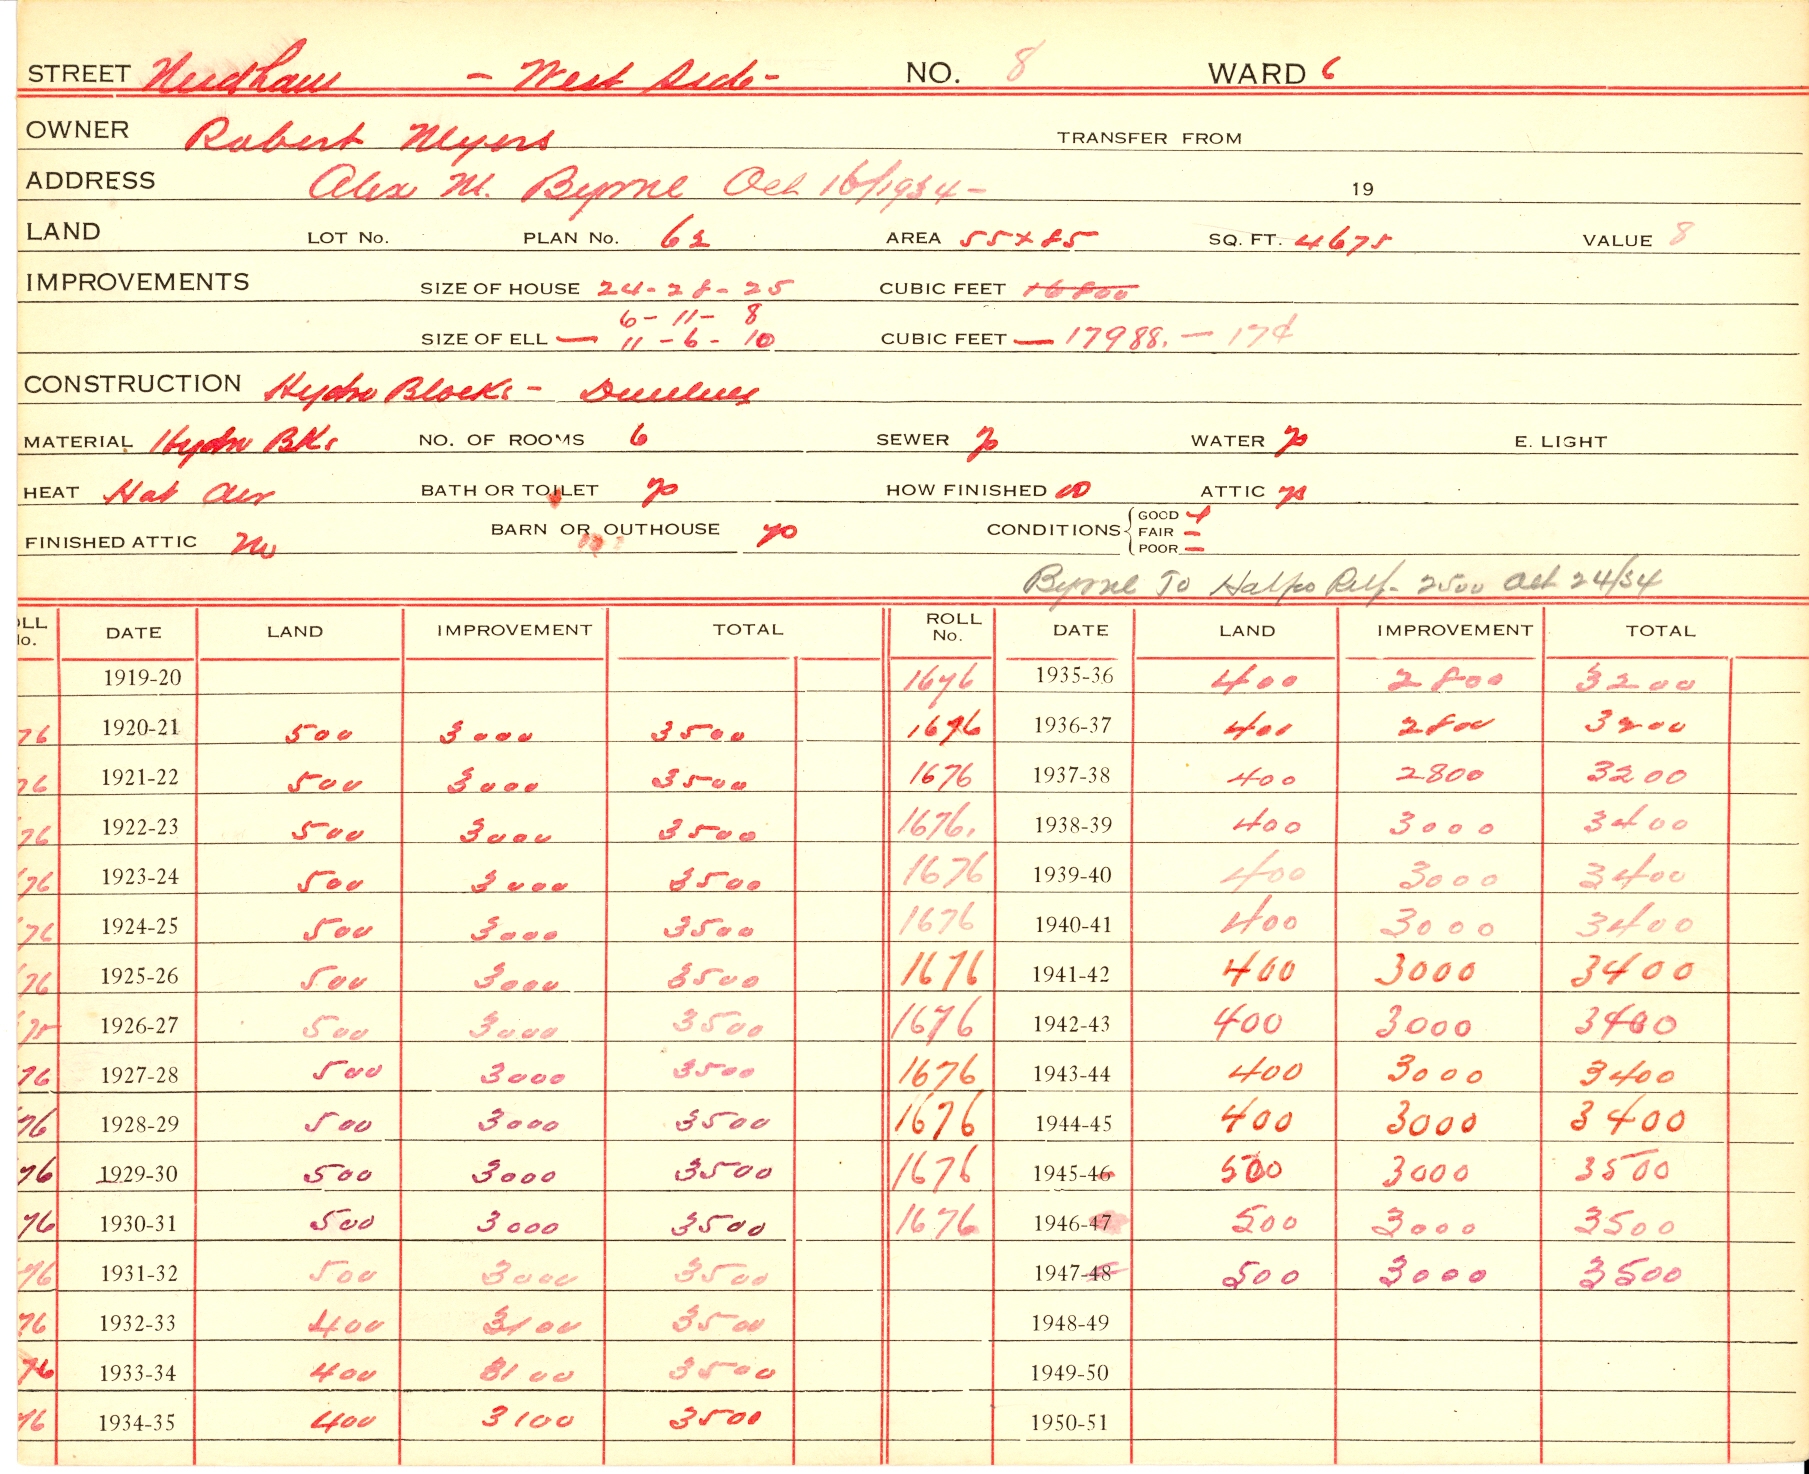 STREET Needham - West Side - NO. 8 WARD 6
OWNER Robert Myers TRANSFER FROM
ADDRESS Alex M. Byrne Oct 16/1934 - 19
LAND LOT No. PLAN No. 62 AREA 55x85 SQ. FT. 4675 VALUE 8
IMPROVEMENTS SIZE OF HOUSE 24-28-25 CUBIC FEET 16800
6-11-8
SIZE OF ELL — 11-6-10 CUBIC FEET — 17988. — 17¢
CONSTRUCTION Hydro Blocks -
MATERIAL Hydro Bks NO. OF ROOMS 6 SEWER WATER E. LIGHT
HEAT Hot Air BATH OR TOILET HOW FINISHED ATTIC
FINISHED ATTIC No BARN OR OUTHOUSE CONDITIONS GOOD
FAIR -
POOR -
Byrne To Halfco Rlf. 2500 Oct 24/34
OLL No. DATE LAND IMPROVEMENT TOTAL ROLL No. DATE LAND IMPROVEMENT TOTAL
1919-20 1676 1935-36 400 2800 3200
76 1920-21 500 3000 3500 1676 1936-37 400 2800 3200
76 1921-22 500 3000 3500 1676 1937-38 400 2800 3200
76 1922-23 500 3000 3500 1676. 1938-39 400 3000 3400
76 1923-24 500 3000 3500 1676 1939-40 400 3000 3400
76 1924-25 500 3000 3500 1676 1940-41 400 3000 3400
76 1925-26 500 3000 3500 1676 1941-42 400 3000 3400
75 1926-27 500 3000 3500 1676 1942-43 400 3000 3400
76 1927-28 500 3000 3500 1676 1943-44 400 3000 3400
76 1928-29 500 3000 3500 1676 1944-45 400 3000 3400
76 1929-30 500 3000 3500 1676 1945-46 500 3000 3500
76 1930-31 500 3000 3500 1676 1946-47 500 3000 3500
76 1931-32 500 3000 3500 1947-48 500 3000 3500
76 1932-33 400 3100 3500 1948-49
76 1933-34 400 3100 3500 1949-50
76 1934-35 400 3100 3500 1950-51